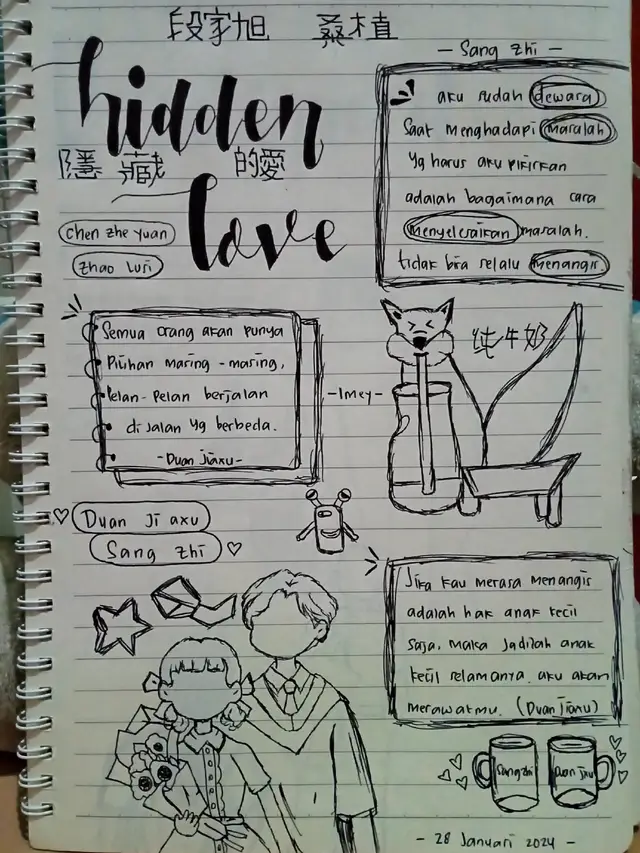 段家旭 桑植
hidden
隱藏的愛
love
chen zhe yuan
zhao lusi
- Sang zhi -
aku sudah dewasa
saat menghadapi masalah
yg harus aku pikirkan
adalah bagaimana cara
menyelesaikan masalah.
tidak bisa selalu menangis
Semua orang akan punya
Pilihan masing - masing,
Pelan - Pelan berjalan
di jalan yg berbeda.
- Duan jiaxu -
- Imey -
纯牛奶
Duan Ji axu
Sang zhi
Jika kau merasa menangis
adalah hak anak kecil
saja, maka jadilah anak
kecil selamanya. aku akan
merawatmu. (Duan jiaxu)
Sang zhi
Duan jiaxu
- 28 Januari 2024 -